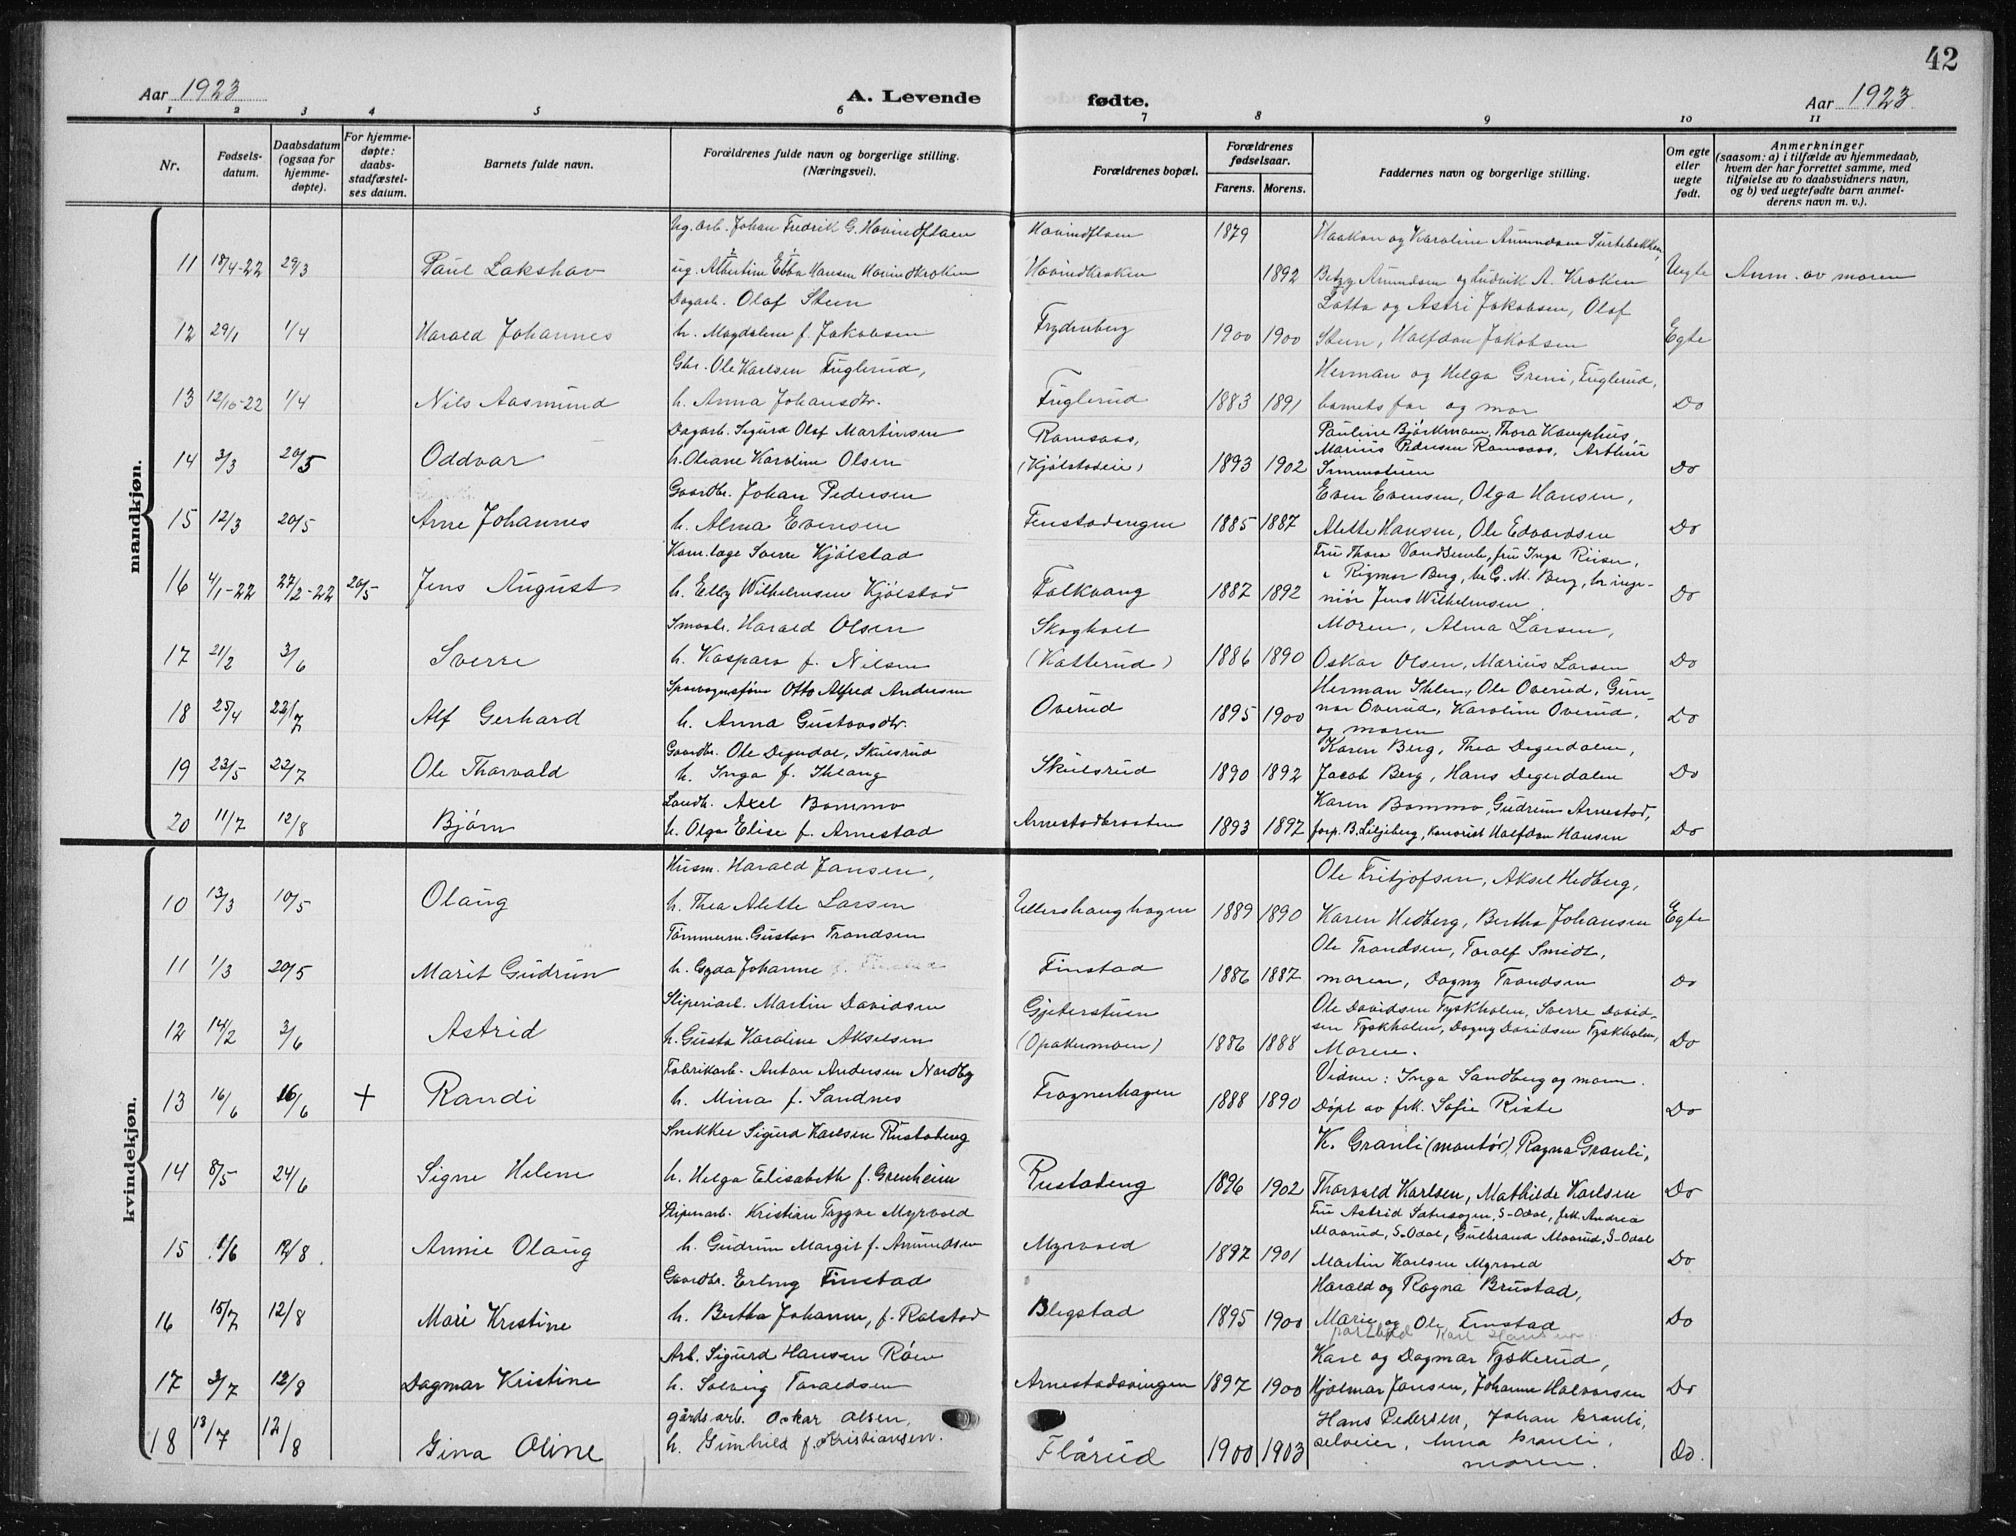 42
Aar 1923
A. Levende
fødte.
Aar 1923
1 2 3 4 5 6 7 8 9 10 11
Nr.
Fødsels-
datum.
Daabsdatum
(ogsaa for
hjemme-
døpte).
For hjemme-
døpte:
daabs-
stadfæstel-
ses datum.
Barnets fulde navn.
Forældrenes fulde navn og borgerlige stilling.
(Næringsvei).
Forældrenes bopæl.
Forældrenes
fødselsaar.
Farens. Morens.
Faddernes navn og borgerlige stilling.
Om egte
eller
uegte
født.
Anmerkninger
(saasom: a) i tilfælde av hjemmedaab,
hvem der har forrettet samme, med
tilføielse av to daabsvidners navn,
og b) ved uegtefødte barn anmel-
derens navn m. v.).
mandkjøn.
Ug. arb. Johan Fredrik G. Hovindflaen Hovindflaen 1879 Haakon og Karoline Amundsen Surtebekken,
11 18/4-22 29/3 Paul Lakshav ug. Albertine Ebba Hansen Hovindkroken Hovindkroken 1892 Betzy Amundsen og Ludvik A. Kroken Uegte Anm. av moren
Dagarb. Olaf Steen Lotta og Astri Jakobsen, Olaf
12 29/1 1/4 Harald Johannes h. Magdalene f. Jakobsen Frydenberg 1900 1900 Steen, Halfdan Jakobsen Egte
Gbr. Ole Karlsen Fuglerud, Herman og Helga Greni, Fuglerud,
13 12/10-22 1/4 Nils Aasmund h. Anna Johansdtr. Fuglerud 1883 1891 barnets far og mor Do
Dagarb. Sigurd Olaf Martinsen Ramsaas, Pauline Bjørkmoen, Thora Kamphus,
14 3/3 20/5 Oddvar h. Oliane Karoline Olsen (Kjølstadeie) 1893 1902 Marius Pedersen Ramsaas, Arthur
Simmstuen Do
Gaardbr. Johan Pedersen Even Evensen, Olga Hansen,
15 12/3 20/5 Arne Johannes h. Alma Evensen Finstadengen 1885 1887 Alette Hansen, Ole Edvardsen Do
Kom.læge Sverre Kjølstad Fru Thora Vandsemb, fru Inga Riiser,
16 4/1-22 27/2-22 20/5 Jens August h. Elly Wilhelmsen Kjølstad Folkvang 1887 1892 Rigmor Berg, hr G. M. Berg, hr inge-
niør Jens Wilhelmsen. Do
Smaabr. Harald Olsen Skogholt Moren, Alma Larsen,
17 21/2 3/6 Sverre h. Kaspara f. Nilsen (Katterud) 1886 1890 Oskar Olsen, Marius Larsen Do
Sporvognsfører Otto Alfred Andersen Herman Ihlen, Ole Overud, Gun-
18 25/4 22/7 Alf Gerhard h. Anna Gustavsdtr. Overud 1895 1900 nar Overud, Karoline Overud,
og moren Do
Gaardbr. Ole Degerdal, Skulsrud Karen Berg, Thea Degerdalen,
19 23/5 22/7 Ole Thorvald h. Inga f. Ihlang Skulsrud 1890 1892 Jacob Berg, Hans Degerdalen Do
Landh. Axel Bommo Karen Bommo, Gudrun Arnestad,
20 11/7 12/8 Bjørn h. Olga Elise f. Arnestad Arnestadbraaten 1893 1897 forp. B. Liljeberg, kontorist Halfdan Hansen Do
kvindekjøn.
Husm. Harald Jansen, Ole Fritjofsen, Aksel Hedberg,
10 13/3 10/5 Olaug h. Thea Alette Larsen Ullershaughagen 1889 1890 Karen Hedberg, Bertha Johansen Egte
Tømmerm. Gustav Trandsen Ole Trandsen, Toralf Smidt,
11 1/3 20/5 Marit Gudrun h. Gyda Johanne f. Finstad Finstad 1886 1887 moren, Dagny Trandsen Do
Sliperiarb. Martin Davidsen Gjeterstuen Ole Davidsen Tyskholen, Sverre David-
12 14/2 3/6 Astrid h. Gusta Karoline Akselsen (Opakermoen) 1886 1888 sen Tyskholen, Dagny Davidsen Tyskholen,
Moren. Do
Fabrikarb. Anton Andersen Nordby Vidner: Inga Sandberg og moren.
13 16/6 16/6 + Randi h. Mina f. Sandnes Frognerhagen 1888 1890 Døpt av frk. Sofie Riste Do
Snekker Sigurd Karlsen Rustadeng K. Granli (montør), Ragna Granli,
14 8/5 24/6 Signe Helene h. Helga Elisabeth f. Grenheim Rustadeng 1896 1902 Thorvald Karlsen, Mathilde Karlsen Do
Sliperiarb. Kristian Trygve Myrvold Fru Astrid Sætersagen, S-Odal, frk. Andrea
Maarud, S-Odal, Gulbrand Maarud, S-Odal
15 1/6 12/8 Annie Olaug h. Gudrun Margit f. Amundsen Myrvold 1897 1901 Martin Karlsen Myrvold Do
Gaardbr. Erling Finstad Harald og Ragna Brustad,
16 15/7 12/8 Mari Kristine h. Bertha Johanne, f. Rolstad Blegstad 1895 1900 Marie og Ole Finstad Do
Arb. Sigurd Hansen Røen Kare og Dagmar Tyskerud,
17 3/7 12/8 Dagmar Kristine h. Solveig Taraldsen Arnestadsvingen 1897 1900 Hjalmar Jansen, Johanne Halvorsen Do
gårdsarb. Oskar Olsen, Hans Pedersen, Johan Granli,
18 13/7 12/8 Gina Oline h. Gunhild f. Kristiansen. Flårud 1900 1903 selveier, Anna Granli,
moren. Do.